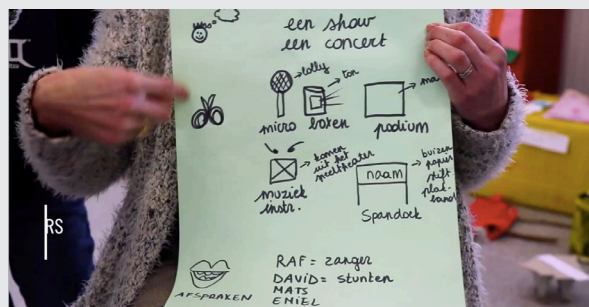 een show
een concert
lolly
ton
micro
boxen
podium
komen
uit het
speeltheater
muziek
instr.
naam
Spandoek
buizen
papier
stift
plak-
band
AFSPRAKEN
RAF = zanger
DAVID = stunten
MATS
EMIEL
RS